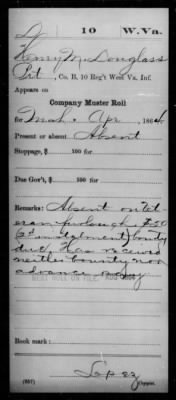 D 10 W.Va.
Henry M. Douglass
Pvt., Co. B, 10 Reg't West Va. Inf.
Appears on
Company Muster Roll
for Mch & Apr, 1864
Present or absent Absent
Stoppage, $ 100 for
Due Gov't, $ 100 for
Remarks: Absent on Vet
eran furlough. $50
(2d instalment) bounty
due. Has received
neither bounty nor
advance pay
Book mark:
(857) Copyist.